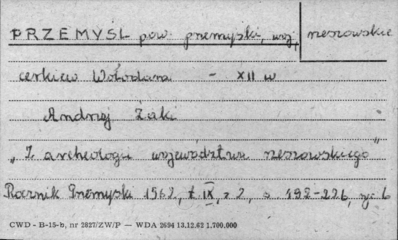 PRZEMYŚL pow. przemyski, woj. rzeszowskie
cerkiew Wołodara - XII w
Andrzej Żaki
"Z archeologii województwa rzeszowskiego"
Rocznik Przemyski 1962, t IX, z 2, s 192-226, ryc 6
CWD - B-15-b, nr 2827/ZW/P — WDA 2694 13.12.62 1.700.000